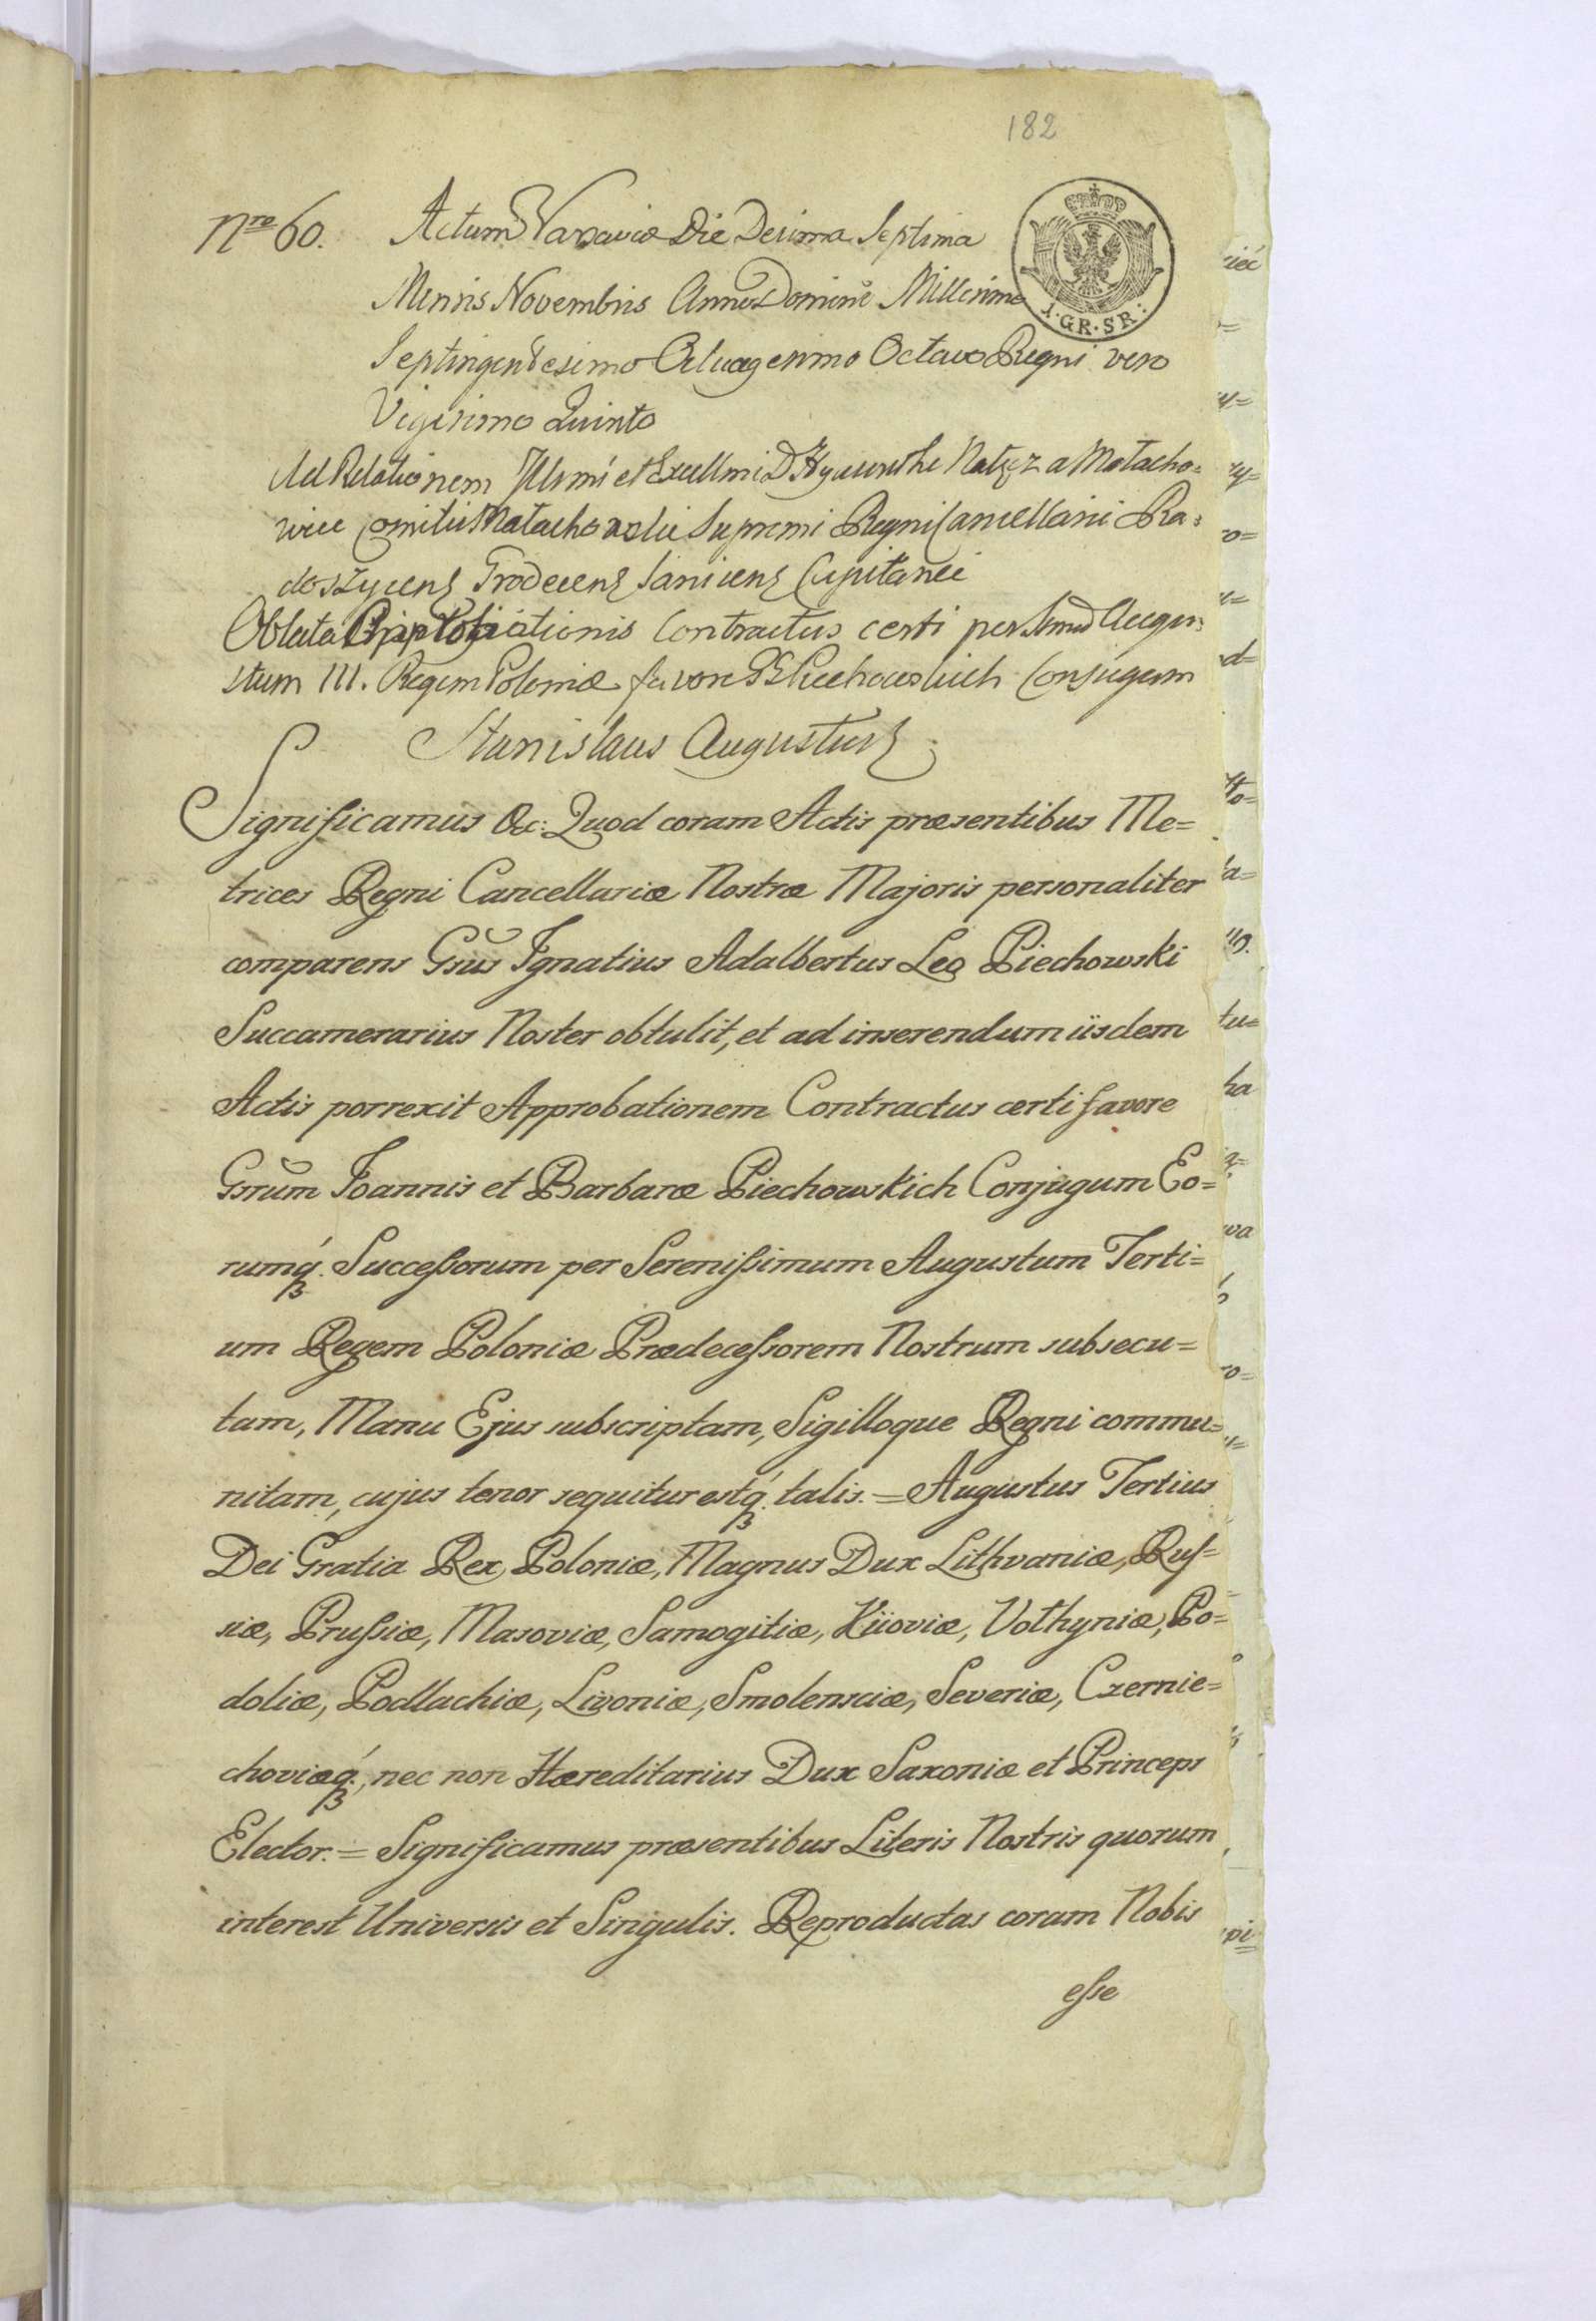 182
Nro 60. Actum Varsaviæ Die Decima Septima
Mensis Novembris Anno Domini Millesimo
1·GR·SR:
Septingentesimo Octuagesimo Octavo Regni vero
Vigesimo Quinto
Ad Relationem Illsmi et Excellmi D Hyacinthi Nałęcz a Małacho=
wice Comitis Małachowski Supremi Regni Cancellarii Ra=
doszycens Grodecens Sanicens Capitanei
Oblata Approbationis Contractus certi per Smum Augu=
stum III. Regem Poloniæ favore GG Piechowskich Conjugum
Stanislaus Augustus
Significamus &c: Quod coram Actis præsentibus Me=
trices Regni Cancellariæ Nostræ Majoris personaliter
comparens Gsus Ignatius Adalbertus Leo Piechowski
Succamerarius Noster obtulit, et ad inserendum iisdem
Actis porrexit Approbationem Contractus certi favore
Gsrum Joannis et Barbaræ Piechowskich Conjugum Eo=
rumq́ Successorum per Serenissimum Augustum Terti=
um Regem Poloniæ Prædecessorem Nostrum subsecu=
tam, Manu Ejus subscriptam, Sigilloque Regni commu=
nitam, cujus tenor sequitur estq́ talis. = Augustus Tertius
Dei Gratia Rex Poloniæ, Magnus Dux Lithvaniæ, Rus=
siæ, Prussiæ, Masoviæ, Samogitiæ, Kiioviæ, Volhyniæ, Po=
doliæ, Podlachiæ, Livoniæ, Smolensciæ, Severiæ, Czernie=
choviæq́, nec non Hæreditarius Dux Saxoniæ et Princeps
Elector. = Significamus præsentibus Literis Nostris quorum
interest Universis et Singulis. Reproductas coram Nobis
esse